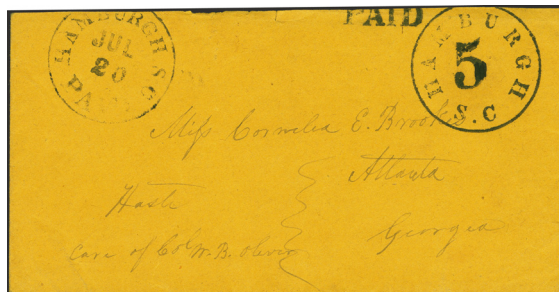 HAMBURGH S.C.
JUL
20
PAID
PAID
HAMBURGH
5
S.C
Miss Cornelia E. Brookes
Atlanta
Haste
Georgia
Care of Col W. B. Oliver